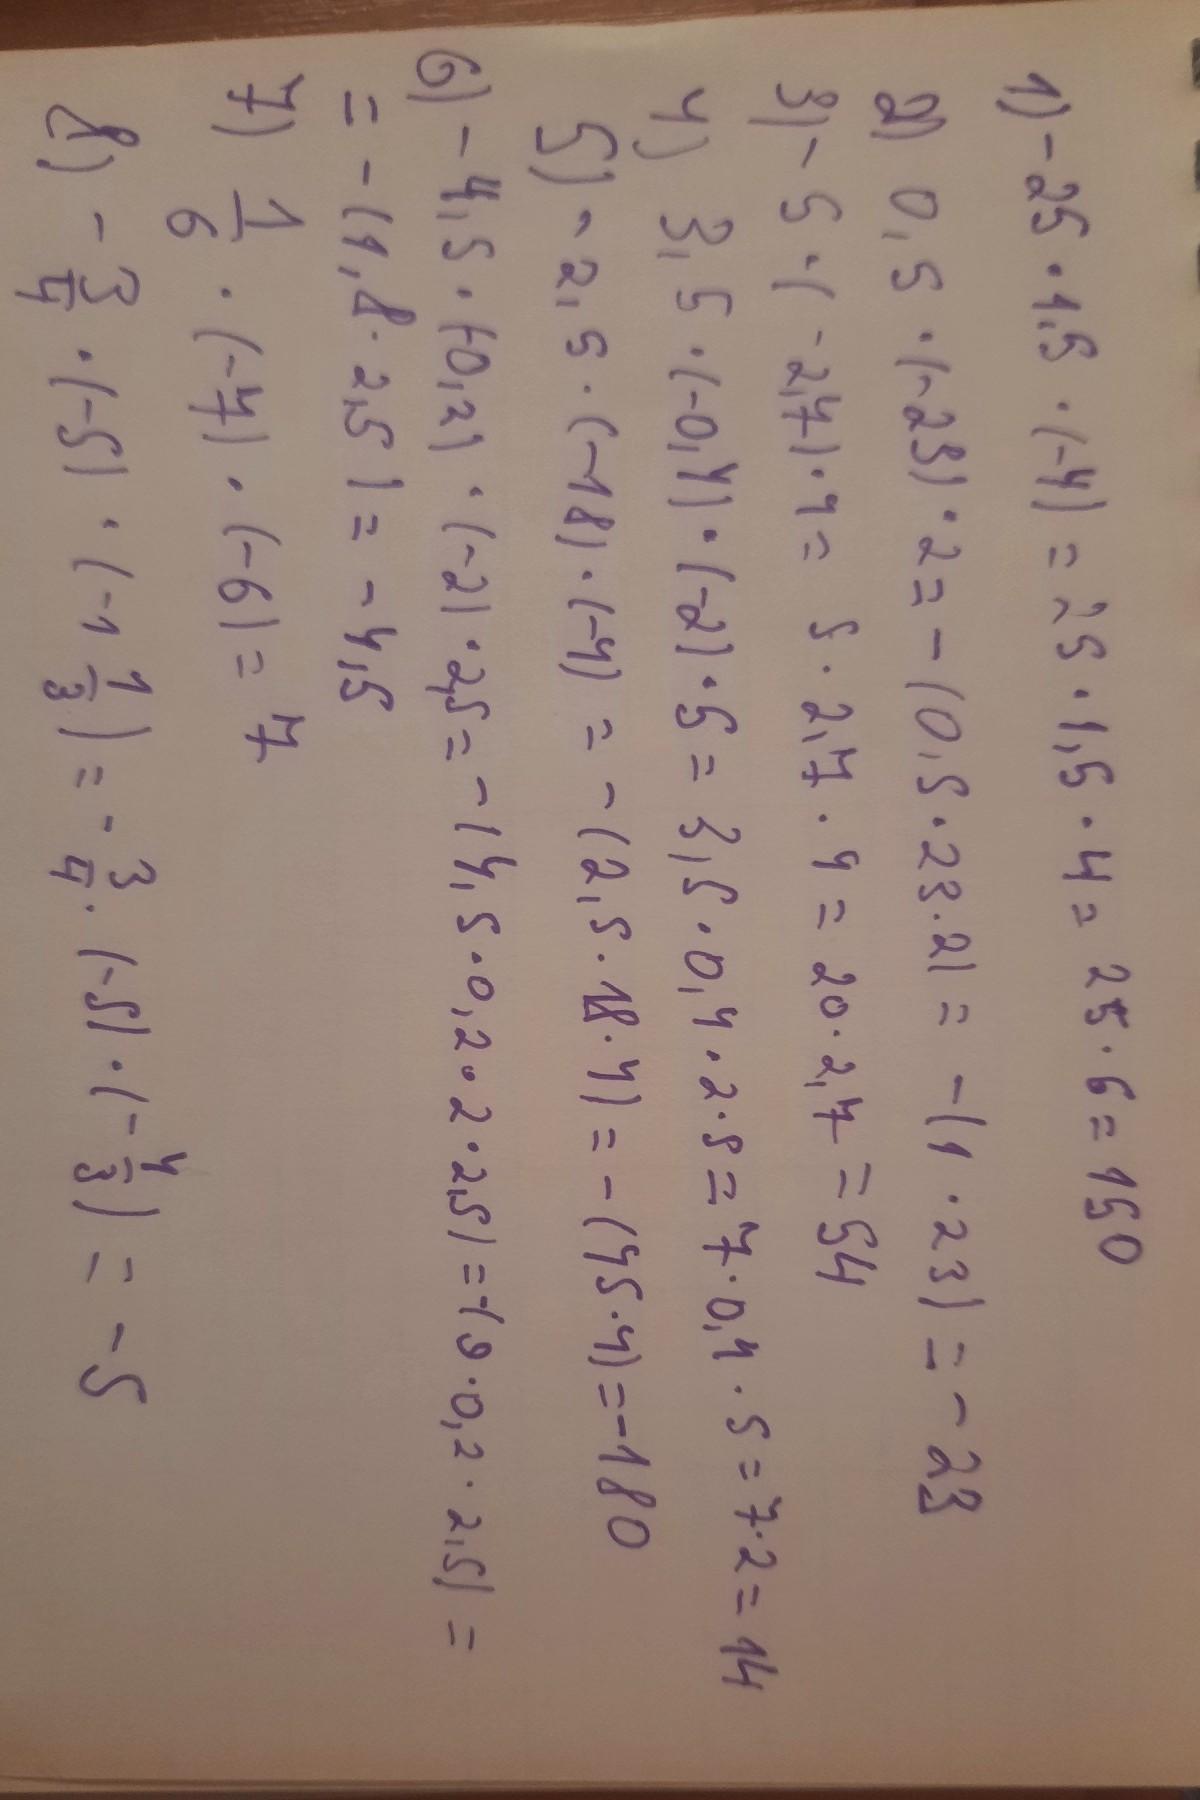 1) -25 · 1,5 · (-4) = 25 · 1,5 · 4 = 25 · 6 = 150
2) 0,5 · (-23) · 2 = -(0,5 · 23 · 2) = -(1 · 23) = -23
3) -5 · (-2,7) · 4 = 5 · 2,7 · 4 = 20 · 2,7 = 54
4) 3,5 · (-0,4) · (-2) · 5 = 3,5 · 0,4 · 2 · 5 = 7 · 0,4 · 5 = 7 · 2 = 14
5) -2,5 · (-18) · (-4) = -(2,5 · 18 · 4) = -(45 · 4) = -180
6) -4,5 · (-0,2) · (-2) · 2,5 = -(4,5 · 0,2 · 2 · 2,5) = -(9 · 0,2 · 2,5) =
= -(1,8 · 2,5) = -4,5
7) 1/6 · (-7) · (-6) = 7
8) -3/4 · (-5) · (-1 1/3) = -3/4 · (-5) · (-4/3) = -5